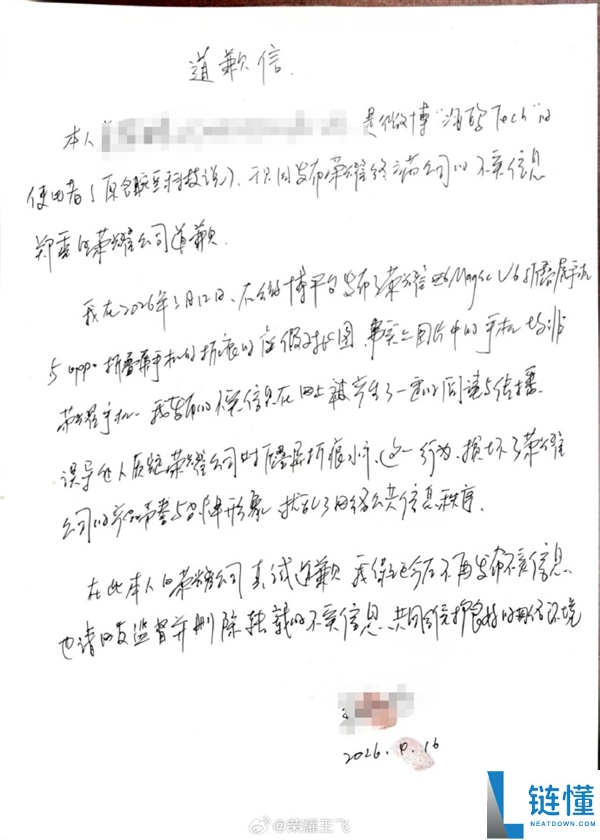 道歉信
本人 是微博“ Tech”的
使用者（原名 科技说），我因发布荣耀终端公司的不实信息
郑重向荣耀公司道歉。
我在2026年3月12日，在微博平台发布了荣耀 Magic V6折叠屏手机
与oppo折叠屏手机的折痕的虚假对比图，事实上图片中的手机均非
荣耀手机。我发布的不实信息在网上被产生了一定的阅读与传播。
误导他人质疑荣耀公司对折叠屏折痕 这一行为，损坏了荣耀
公司的产品声誉与品牌形象，扰乱了网络公共信息秩序。
在此本人向荣耀公司真诚道歉，我保证今后不再发布不实信息，
也请网友监督并删除转载的不实信息，共同维护良好的网络环境
2026. 16
@荣耀王飞
链懂
NEATDOWN.COM